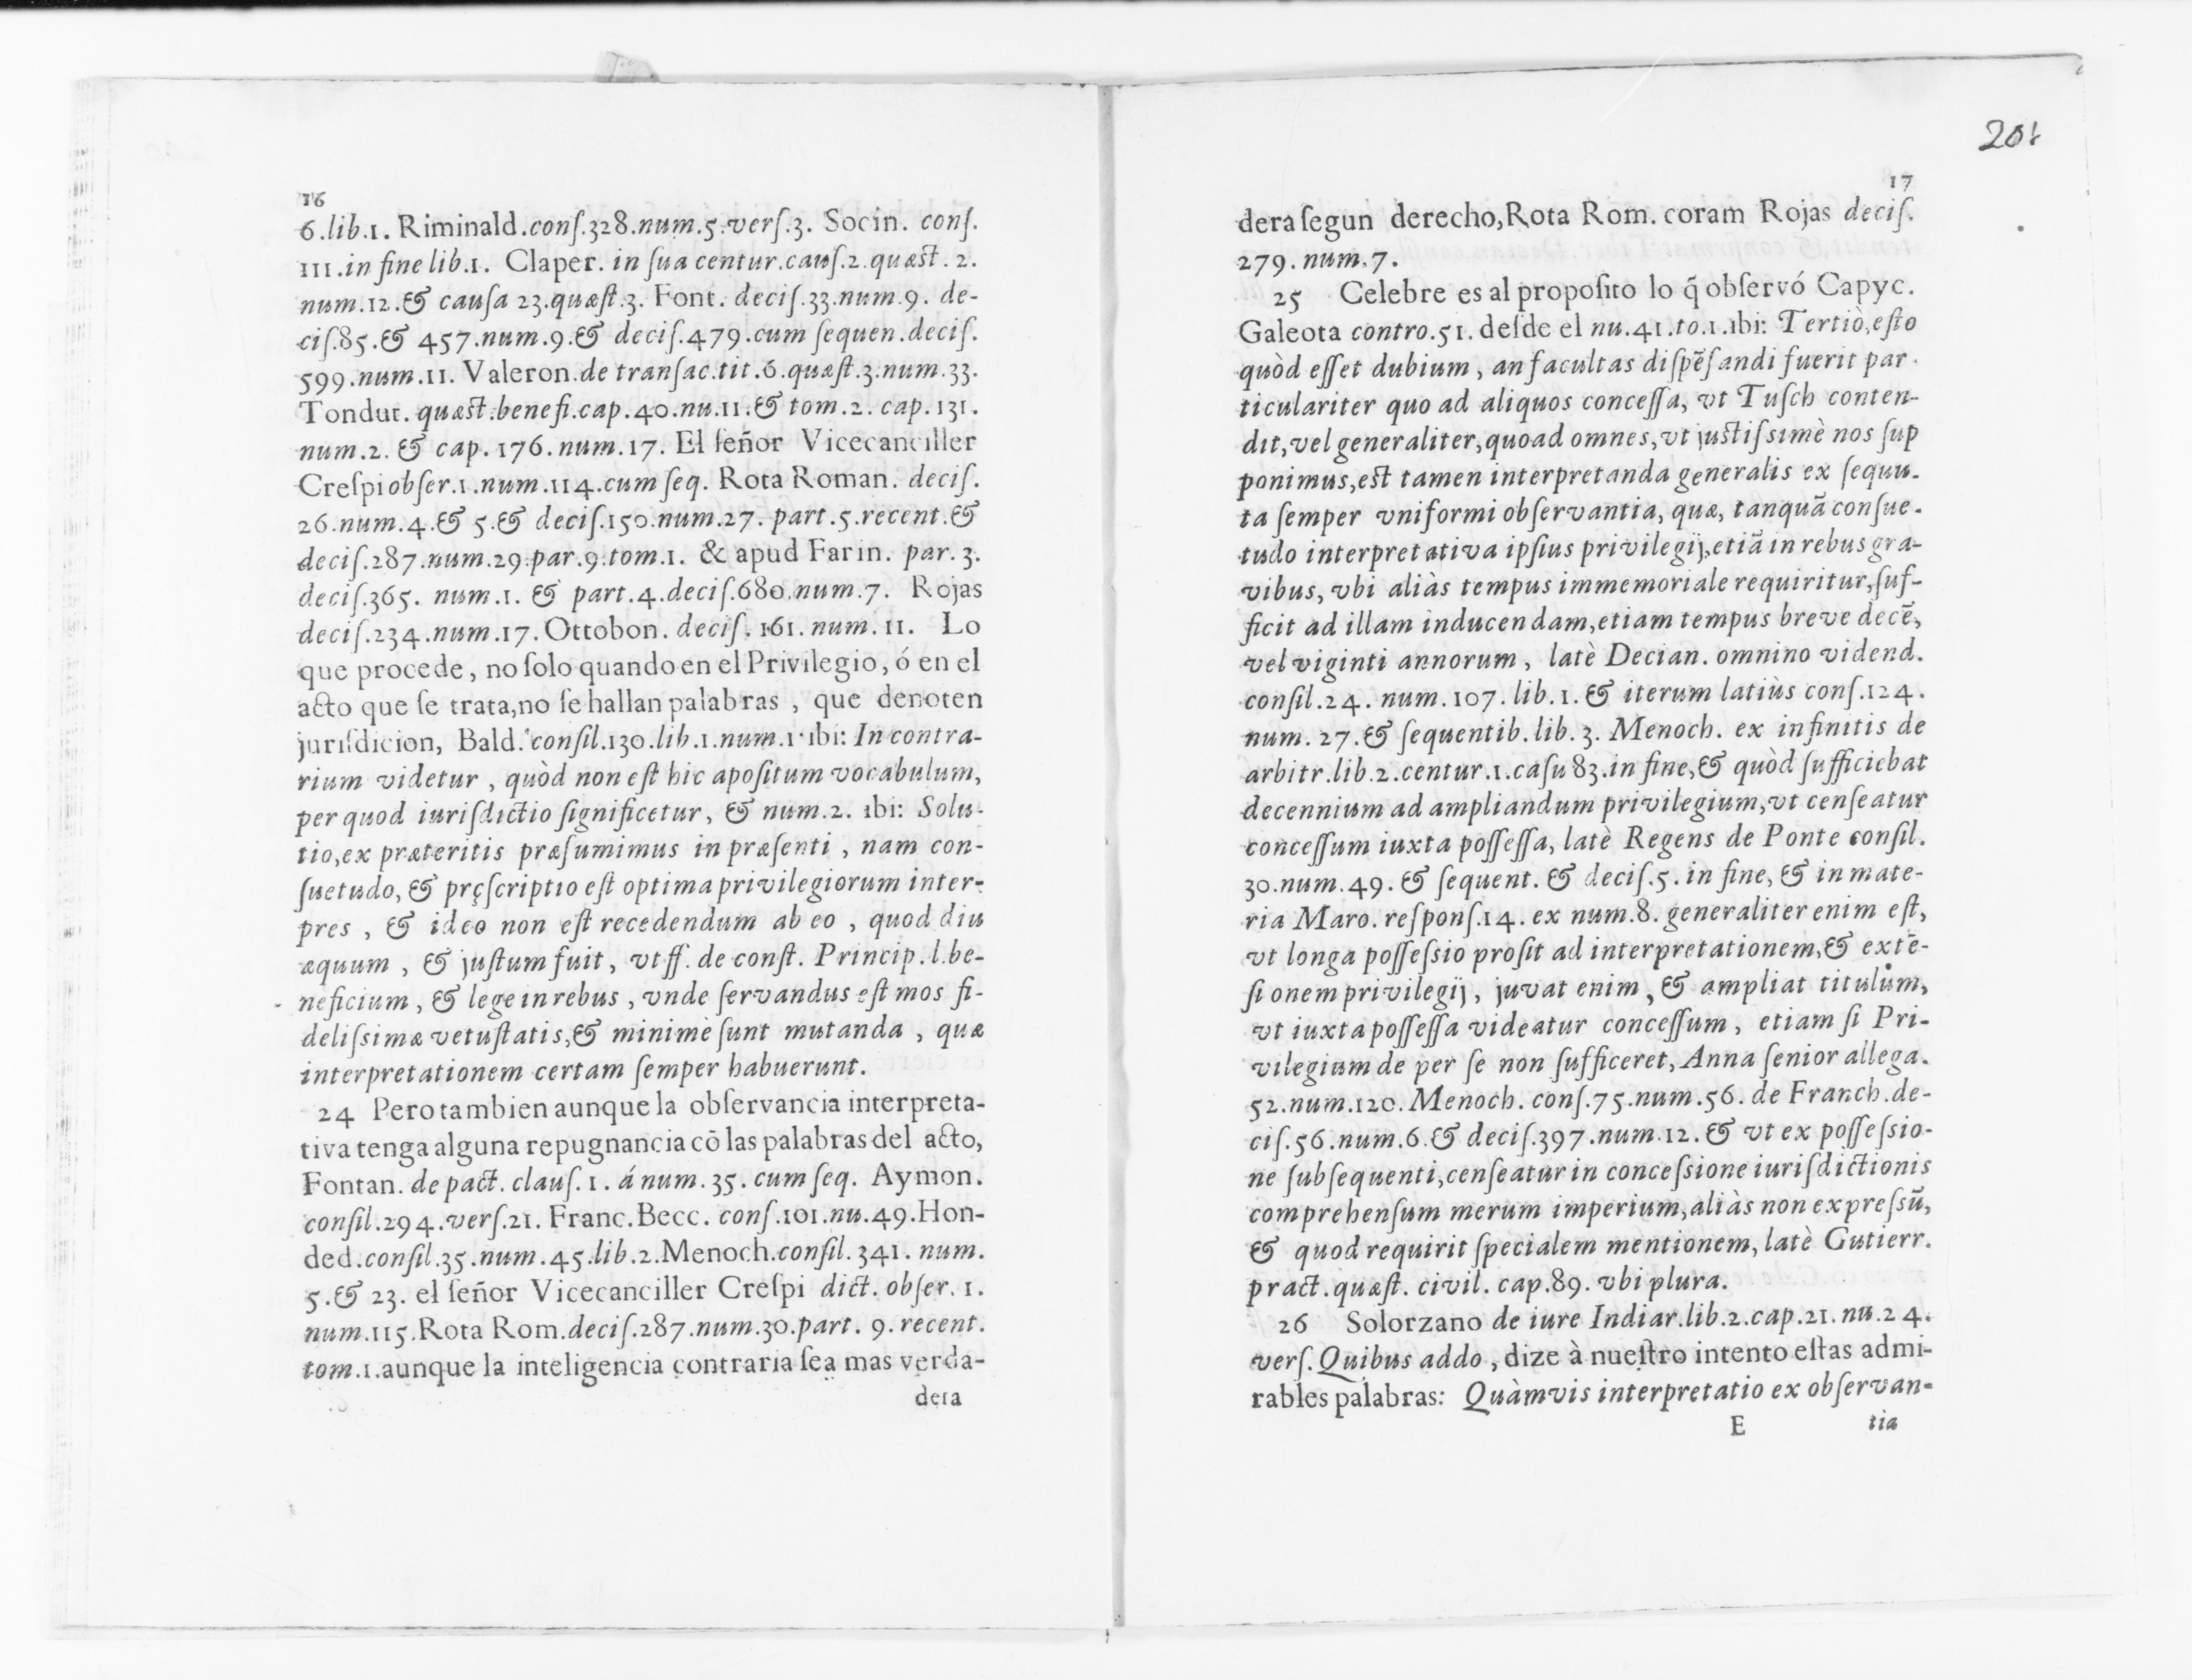 16
6.lib.1. Riminald.conſ.328.num.5.verſ.3. Socin. conſ.
111.in fine lib.1. Claper. in ſua centur.cauſ.2.quæst. 2.
num.12.& cauſa 23.quæſt.3. Font. deciſ.33.num.9. de-
ciſ.85.& 457.num.9.& deciſ.479.cum ſequen.deciſ.
599.num.11. Valeron.de tranſac.tit.6.quæſt.3.num.33.
Tondut. quæst.benefi.cap.40.nu.11.& tom.2. cap.131.
num.2. & cap. 176.num.17. El ſeñor Vicecanciller
Creſpi obſer.1.num.114.cum ſeq. Rota Roman. deciſ.
26.num.4.& 5.& deciſ.150.num.27. part.5.recent.&
deciſ.287.num.29.par.9.tom.1. & apud Farin. par. 3.
deciſ.365. num.1. & part.4.deciſ.680.num.7. Rojas
deciſ.234.num.17.Ottobon. deciſ. 161. num. 11. Lo
que procede, no ſolo quando en el Privilegio, ó en el
acto que ſe trata,no ſe hallan palabras , que denoten
juriſdicion, Bald. conſil.130.lib.1.num.1. ibi: In contra-
rium videtur , quòd non eſt hic apoſitum vocabulum,
per quod iuriſdictio ſignificetur, & num.2. ibi: Solu-
tio,ex præteritis præſumimus in præſenti , nam con-
ſuetudo, & pręſcriptio eſt optima privilegiorum inter-
pres , & ideo non eſt recedendum ab eo , quod diu
æquum , & juſtum fuit, vt ff. de conſt. Princip.l.be-
neficium , & lege in rebus , vnde ſervandus eſt mos fi-
deliſsimæ vetuſtatis,& minimè ſunt mutanda , quæ
interpretationem certam ſemper habuerunt.
24 Pero tambien aunque la obſervancia interpreta-
tiva tenga alguna repugnancia cō las palabras del acto,
Fontan. de pact. clauſ. 1. á num. 35. cum ſeq. Aymon.
conſil.294.verſ.21. Franc.Becc. conſ.101.nu.49.Hon-
ded.conſil.35.num.45.lib.2.Menoch.conſil. 341. num.
5.& 23. el ſeñor Vicecanciller Creſpi dict. obſer. 1.
num.115.Rota Rom.deciſ.287.num.30.part. 9. recent.
tom.1.aunque la inteligencia contraria ſea mas verda-
dera
201
17
dera ſegun derecho,Rota Rom. coram Rojas deciſ.
279. num.7.
25 Celebre es al propoſito lo q̃ obſervó Capyc.
Galeota contro.51. deſde el nu.41.to.1.ibi: Tertiò,eſto
quòd eſſet dubium, an facultas diſpẽſandi fuerit par
ticulariter quo ad aliquos conceſſa, vt Tuſch conten-
dit,vel generaliter,quoad omnes,vt juſtiſsimè nos ſup
ponimus,est tamen interpretanda generalis ex ſequu-
ta ſemper vniformi obſervantia, quæ, tanquã conſue-
tudo interpretativa ipſius privilegij,etiã in rebus gra-
vibus, vbi aliàs tempus immemoriale requiritur,ſuf-
ficit ad illam inducendam,etiam tempus breve decẽ,
vel viginti annorum, latè Decian. omnino vidend.
conſil.24. num.107. lib.1.& iterum latiùs conſ.124.
num. 27.& ſequentib. lib. 3. Menoch. ex infinitis de
arbitr.lib.2.centur.1.caſu 83.in fine,& quòd ſufficiebat
decennium ad ampliandum privilegium,vt cenſeatur
conceſſum iuxta poſſeſſa, latè Regens de Ponte conſil.
30.num.49. & ſequent. & deciſ.5. in fine, & in mate-
ria Maro. reſponſ.14. ex num.8. generaliter enim eſt,
vt longa poſſeſsio proſit ad interpretationem,& extẽ-
ſionem privilegij, juvat enim, & ampliat titulum,
vt iuxta poſſeſſa videatur conceſſum, etiam ſi Pri-
vilegium de per ſe non ſufficeret, Anna ſenior allega.
52.num.120. Menoch. conſ.75.num.56. de Franch.de-
ciſ.56.num.6.& deciſ.397.num.12.& vt ex poſſeſsio-
ne ſubſequenti,cenſeatur in conceſsione iuriſdictionis
comprehenſum merum imperium,aliàs non expreſsũ,
& quod requirit ſpecialem mentionem, latè Gutierr.
pract.quæſt. civil. cap.89. vbi plura.
26 Solorzano de iure Indiar.lib.2.cap.21.nu.24.
verſ. Quibus addo , dize à nueſtro intento eſtas admi-
rables palabras: Quàmvis interpretatio ex obſervan-
E tia